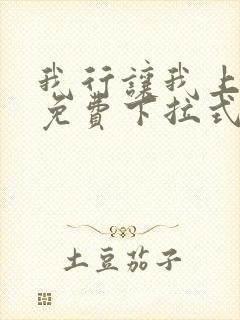 我行讓我上
免費下拉式
土豆茄子